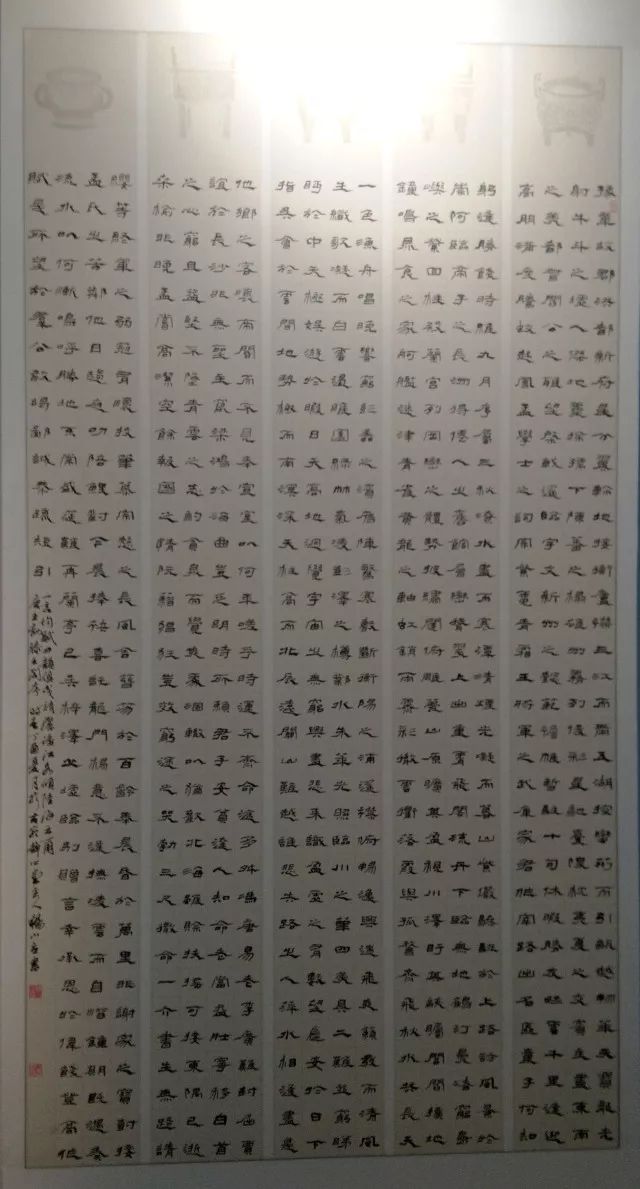 豫章故郡洪都新府星分翼軫地接衡廬襟三江而帶五湖控蠻荊而引甌越物華天寶龍光
射斗牛之墟人傑地靈徐孺下陳蕃之榻雄州霧列俊彩星馳臺隍枕夷夏之交賓主盡東南
之美都督閻公之雅望棨戟遙臨宇文新州之懿範襜帷暫駐十旬休暇勝友如雲千里逢迎
高朋滿座騰蛟起鳳孟學士之詞宗紫電青霜王將軍之武庫家君作宰路出名區童子何知
躬逢勝餞時維九月序屬三秋潦水盡而寒潭清煙光凝而暮山紫儼驂騑於上路訪風景於
崇阿臨帝子之長洲得僊人之舊館層巒聳翠上出重霄飛閣流丹下臨無地鶴汀鳧渚窮島
嶼之縈回桂殿蘭宮列岡巒之體勢披繡闥俯雕甍山原曠其盈視川澤盱其駭矚閭閻撲地
鐘鳴鼎食之家舸艦迷津青雀黃龍之軸虹銷雨霽彩徹雲衢落霞與孤鶩齊飛秋水共長天
一色漁舟唱晚響窮彭蠡之濱雁陣驚寒聲斷衡陽之浦遙襟俯暢逸興遄飛爽籟發而清風
生纖歌凝而白雲遏睢園綠竹氣凌彭澤之樽鄴水朱華光照臨川之筆四美具二難並窮睇
眄於中天極娛遊於暇日天高地迥覺宇宙之無窮興盡悲來識盈虛之有數望長安於日下
指吳會於雲間地勢極而南溟深天柱高而北辰遠關山難越誰悲失路之人萍水相逢盡是
他鄉之客懷帝閽而不見奉宣室以何年嗟乎時運不齊命途多舛馮唐易老李廣難封屈賈
誼於長沙非無聖主竄梁鴻於海曲豈乏明時所賴君子安貧達人知命老當益壯寧移白首
之心窮且益堅不墜青雲之志酌貪泉而覺爽處涸轍以猶歡北海雖賒扶搖可接東隅已逝
桑榆非晚孟嘗高潔空餘報國之情阮籍猖狂豈效窮途之哭勃三尺微命一介書生無路請
纓等終軍之弱冠有懷投筆慕宗愨之長風舍簪笏於百齡奉晨昏於萬里非謝家之寶樹接
孟氏之芳鄰他日趨庭叨陪鯉對今晨捧袂喜託龍門楊意不逢撫凌雲而自惜鐘期既遇奏
流水以何慚嗚呼勝地不常盛筵難再蘭亭已矣梓澤丘墟臨別贈言幸承恩於偉餞登高作
賦是所望於群公敢竭鄙誠恭疏短引
一言均賦四韻俱成請灑潘江各傾陸海云爾
唐王勃滕王閣序